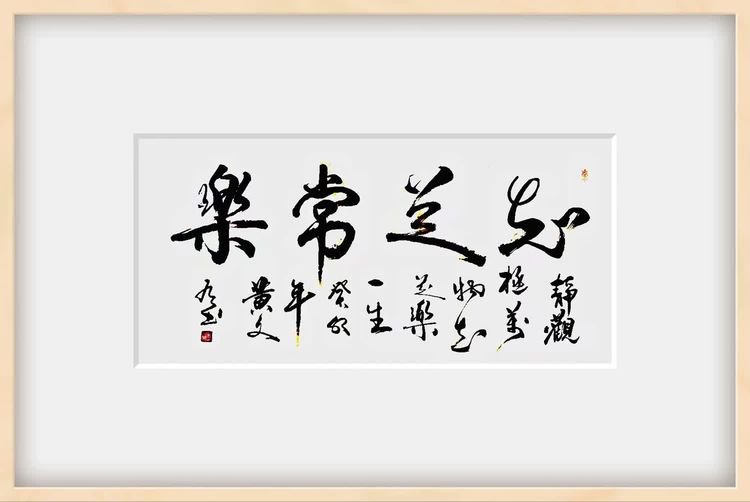 知足常樂
靜觀
極萬
物知
足樂
一生
癸卯
年
黃文